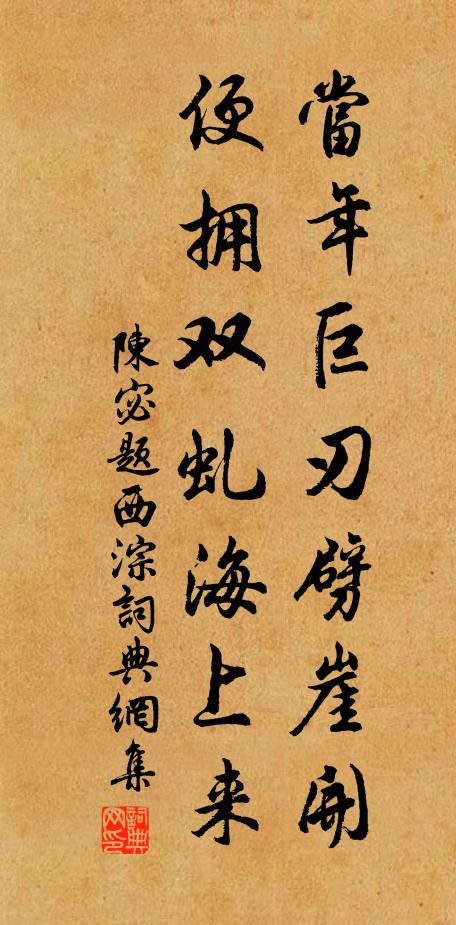 當年巨刃劈崖開
便拥双虬海上来
陳宓题西淙詞典網集
詞典网印